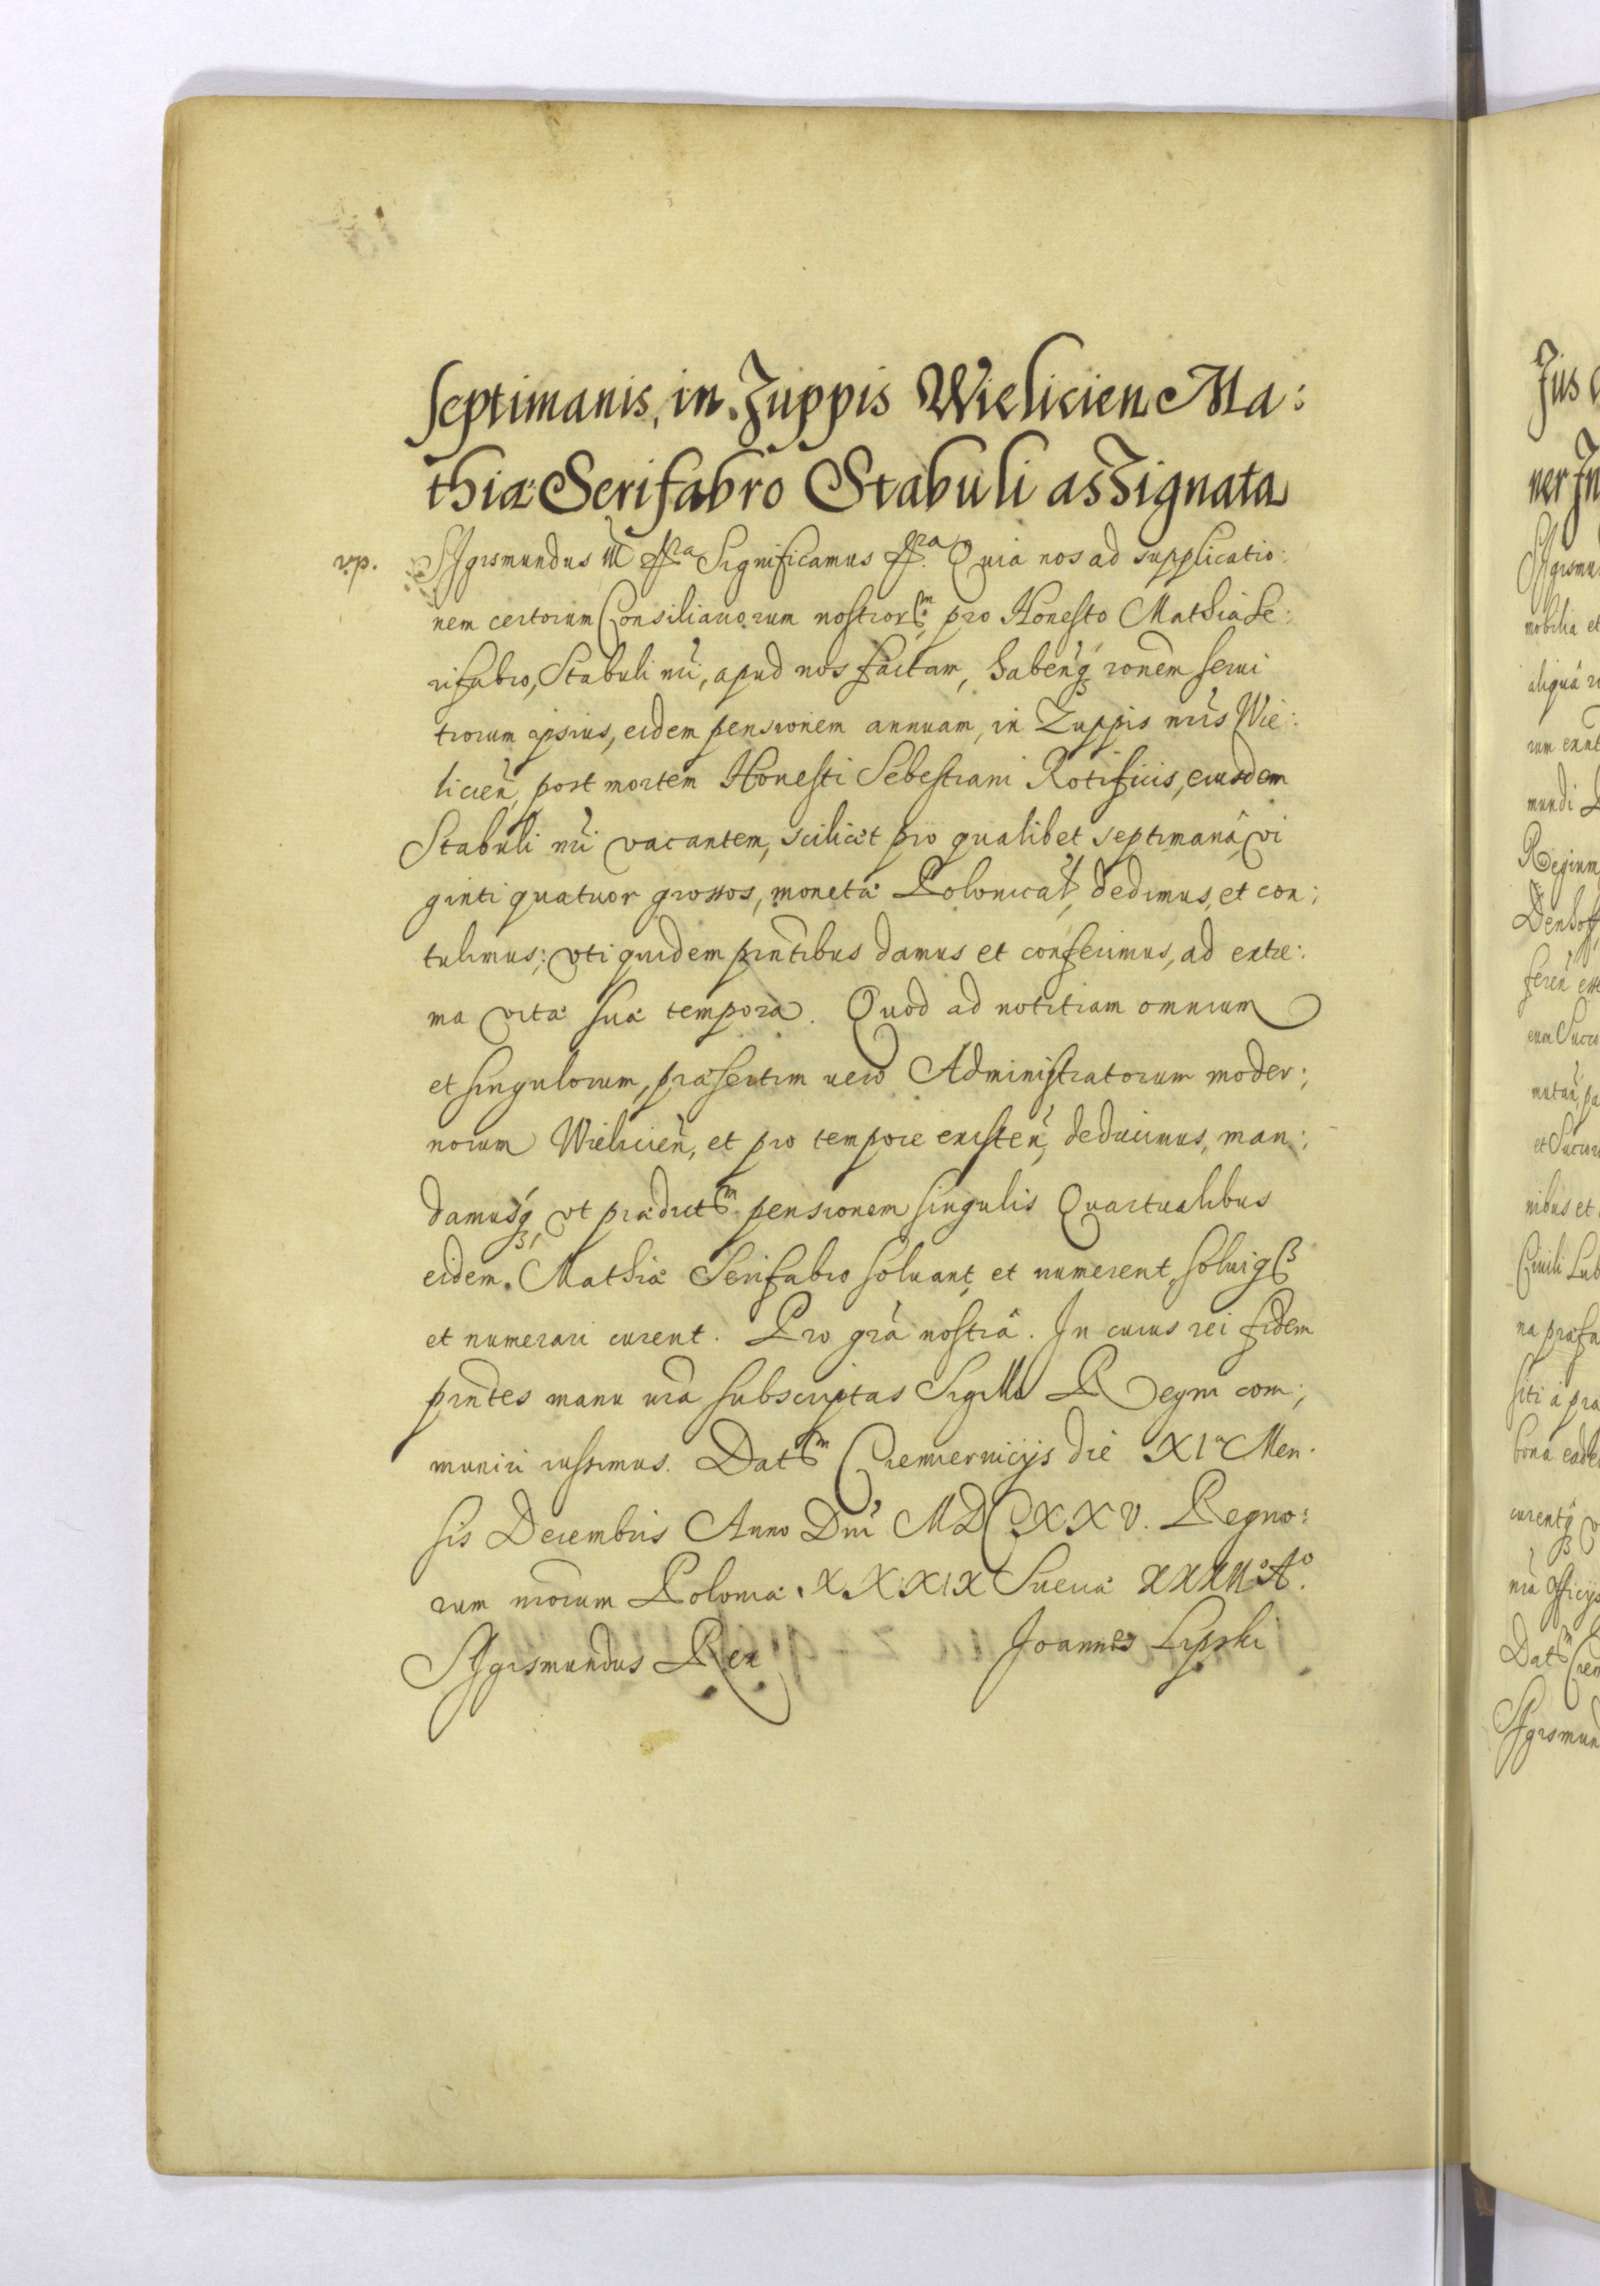 septimanis, in Zuppis Wielicien Ma:
thiæ Serifabro Stabuli assignata
Sigismundus III etc Significamus etc Quia nos ad supplicatio:
nem certorum Consiliariorum nostror pro Honesto Mathia Se:
rifabro, Stabuli nri, apud nos factam, habentq ronem servi
tiorum ipsius, eidem pensionem annuam, in Zuppis nris Wie:
licien, post mortem Honesti Sebestiani Rotificis, eiusdem
Stabuli nri vacantem, scilicet pro qualibet septimanâ, vi
ginti quatuor grossos, monetæ Polonical, dedimus, et con:
tulimus; uti quidem pntibus damus et conferimus, ad extre:
ma vitæ suæ tempora. Quod ad notitiam omnium
et singulorum, præsertim vero Administratorum moder:
norum Wielicien, et pro tempore existen, deducimus, man:
damusq, ut prædict pensionem singulis Quartualibus
eidem Mathiæ Serifabro solvant, et numerent, solviq
et numerari curent. Pro grâ nostrâ. In cuius rei fidem
pntes manu nra subscriptas Sigillo Regni com:
muniri iussimus. Dat die XIa Men
sis Decembris Anno Dni MDCXXV. Regno:
rum nrorum Poloniæ XXXIX Sueciæ XXXIIo Ao.
Sigismundus Rex
Joannes Lipski
Jus
ner In
Sigismu
nobilia et
aliqua
mundi
Denhoff
et Succ
nibus et
Civili Lub
na præfa
siti a præ
bona eade
curentq
Dat
Sigismun